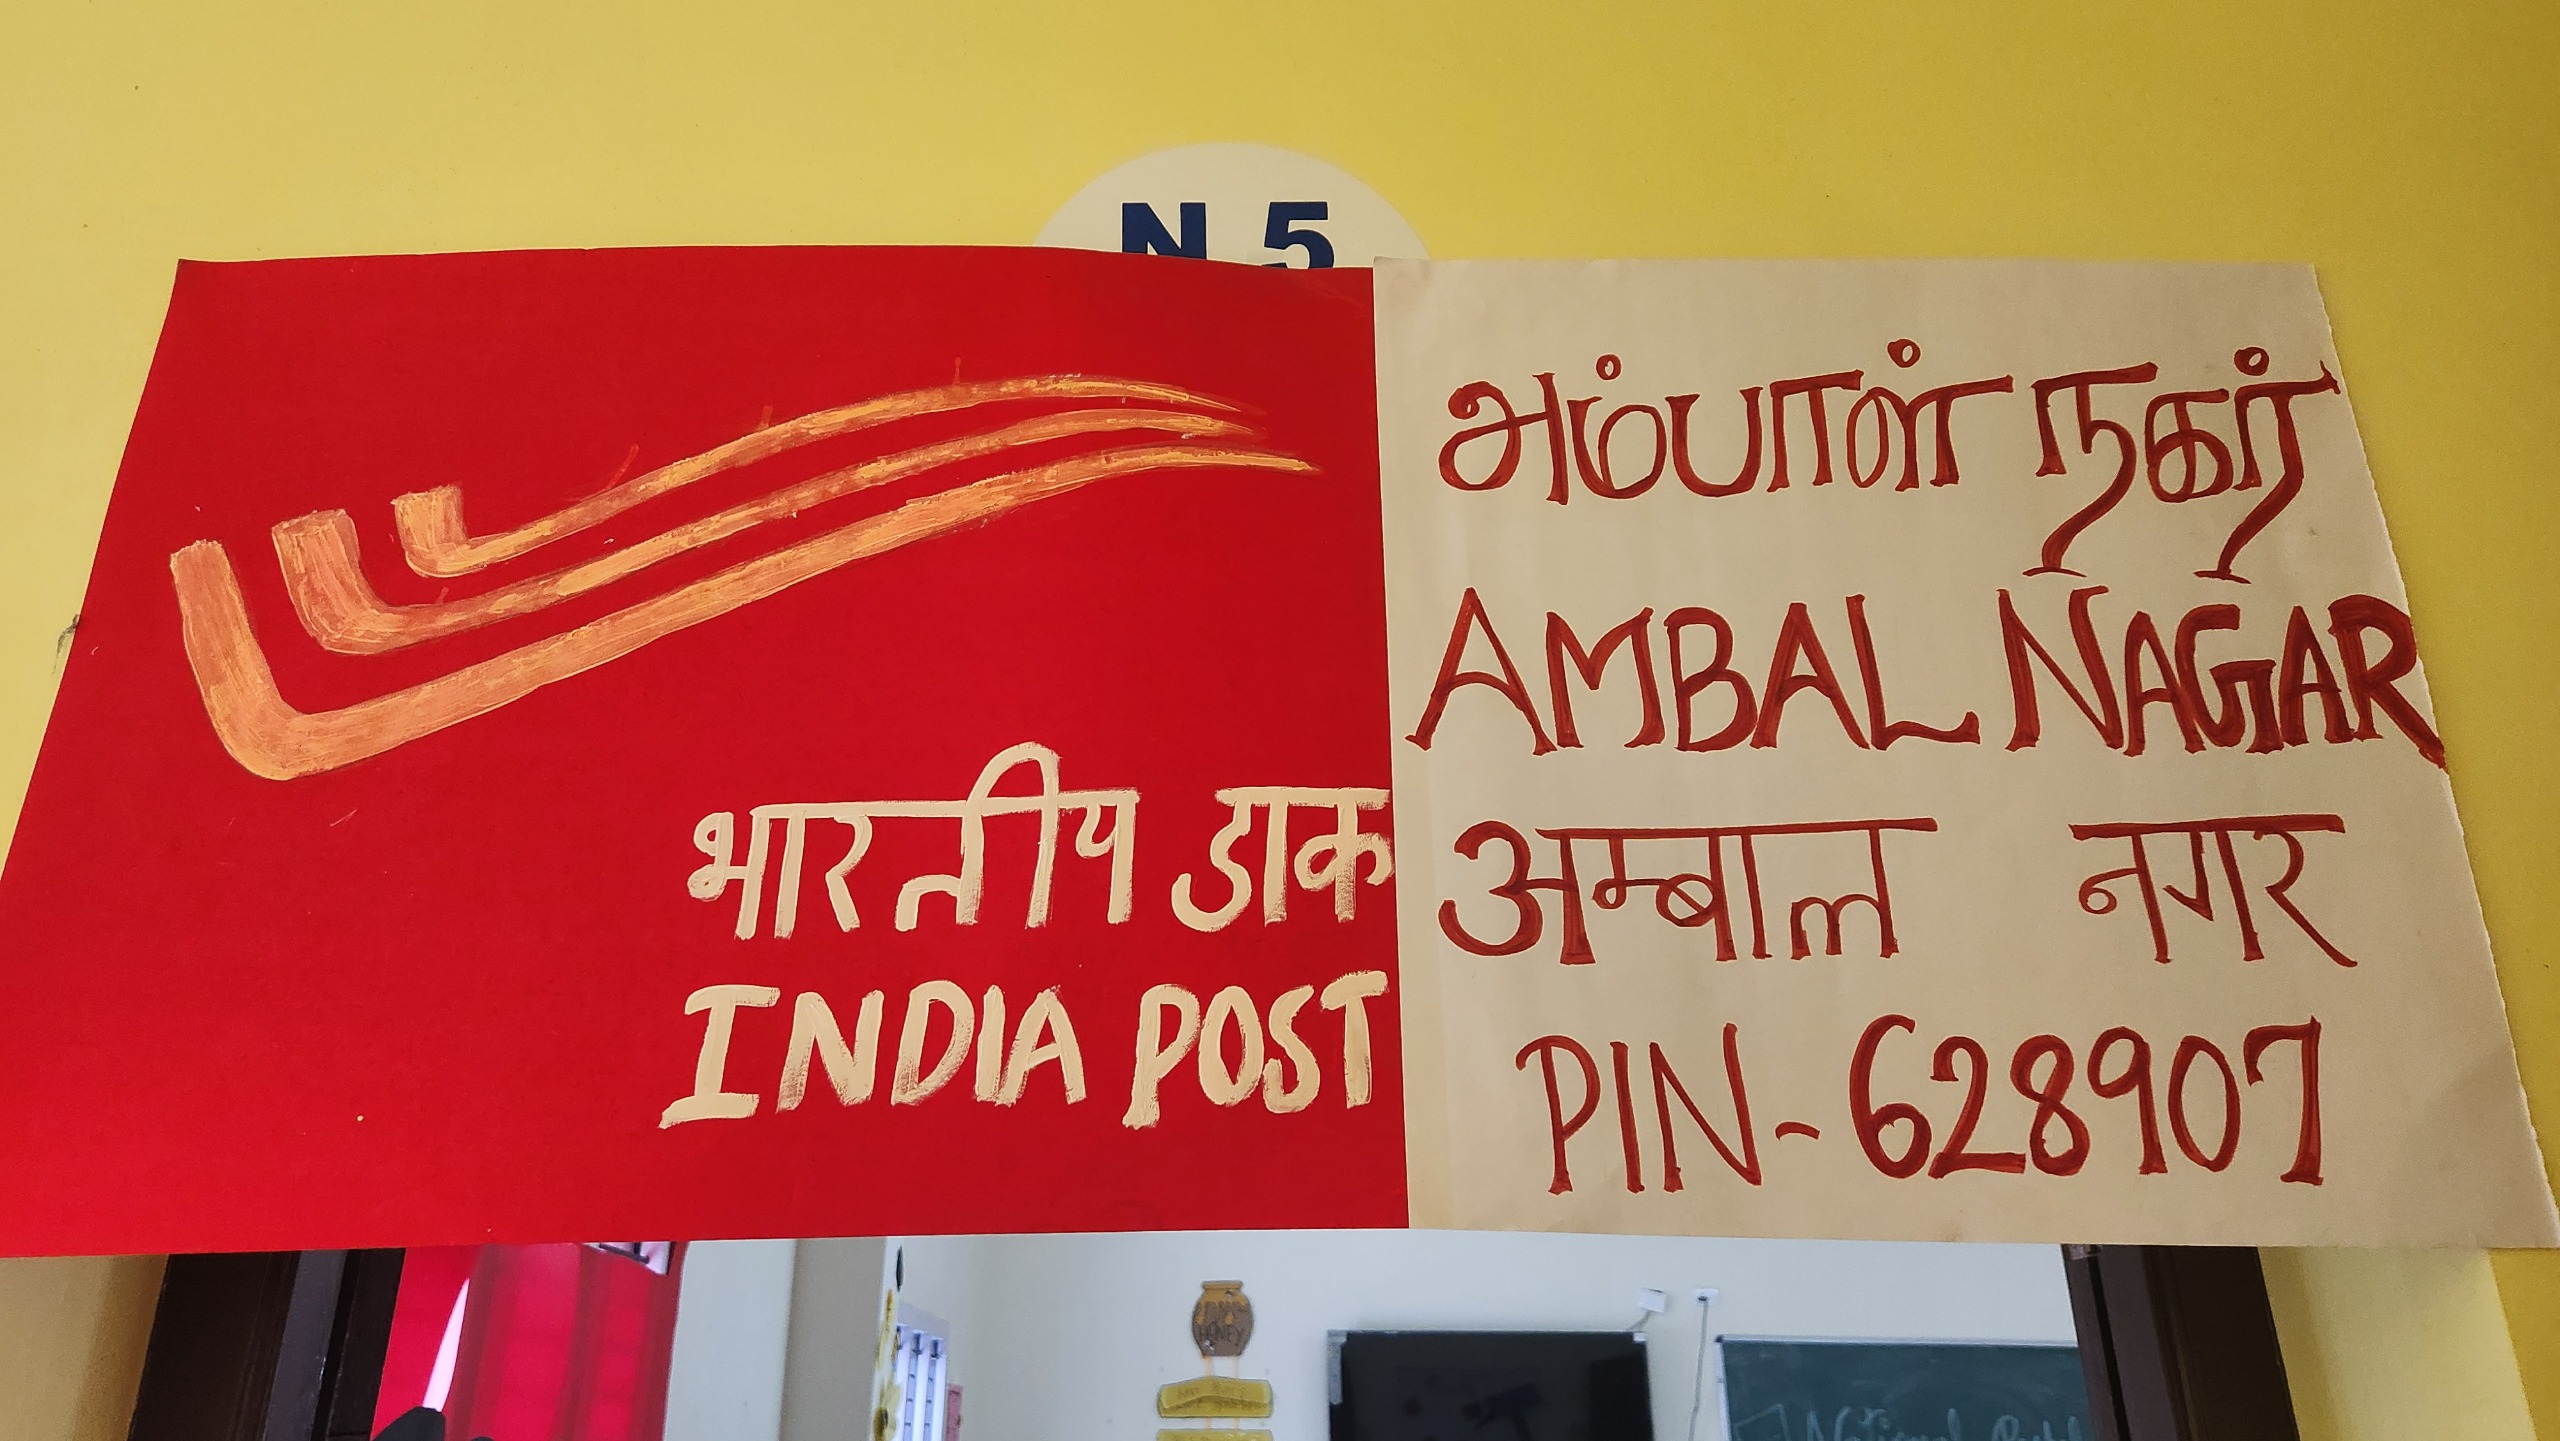 N 5
भारतीय डाक
INDIA POST
அம்பாள் நகர்
AMBAL NAGAR
अम्बाल नगर
PIN-628907
HONEY
National